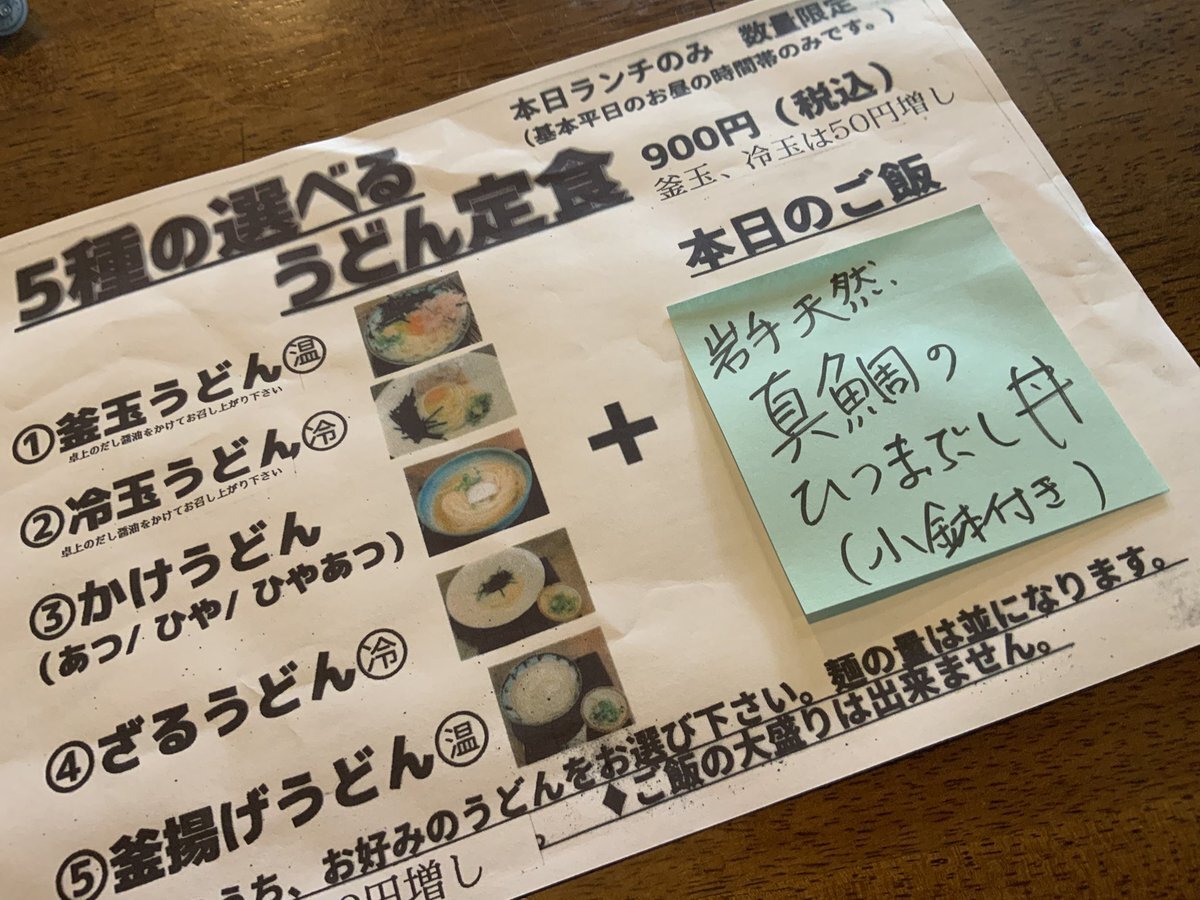 本日ランチのみ 数量限定
(基本平日のお昼の時間帯のみです。)
900円(税込)
釜玉、冷玉は50円増し
5種の選べる
うどん定食
①釜玉うどん㊤温
卓上のだし醤油をかけてお召し上がり下さい
②冷玉うどん 冷
卓上のだし醤油をかけてお召し上がり下さい
③かけうどん
(あつ/ひや/ひやあつ)
④ざるうどん 冷
⑤釜揚げうどん 温
+
本日のご飯
岩手天然
真鯛の
ひつまぶし丼
(小鉢付き)
うち、お好みのうどんをお選び下さい。麺の量は並になります。
◆ご飯の大盛りは出来ません。
円増し